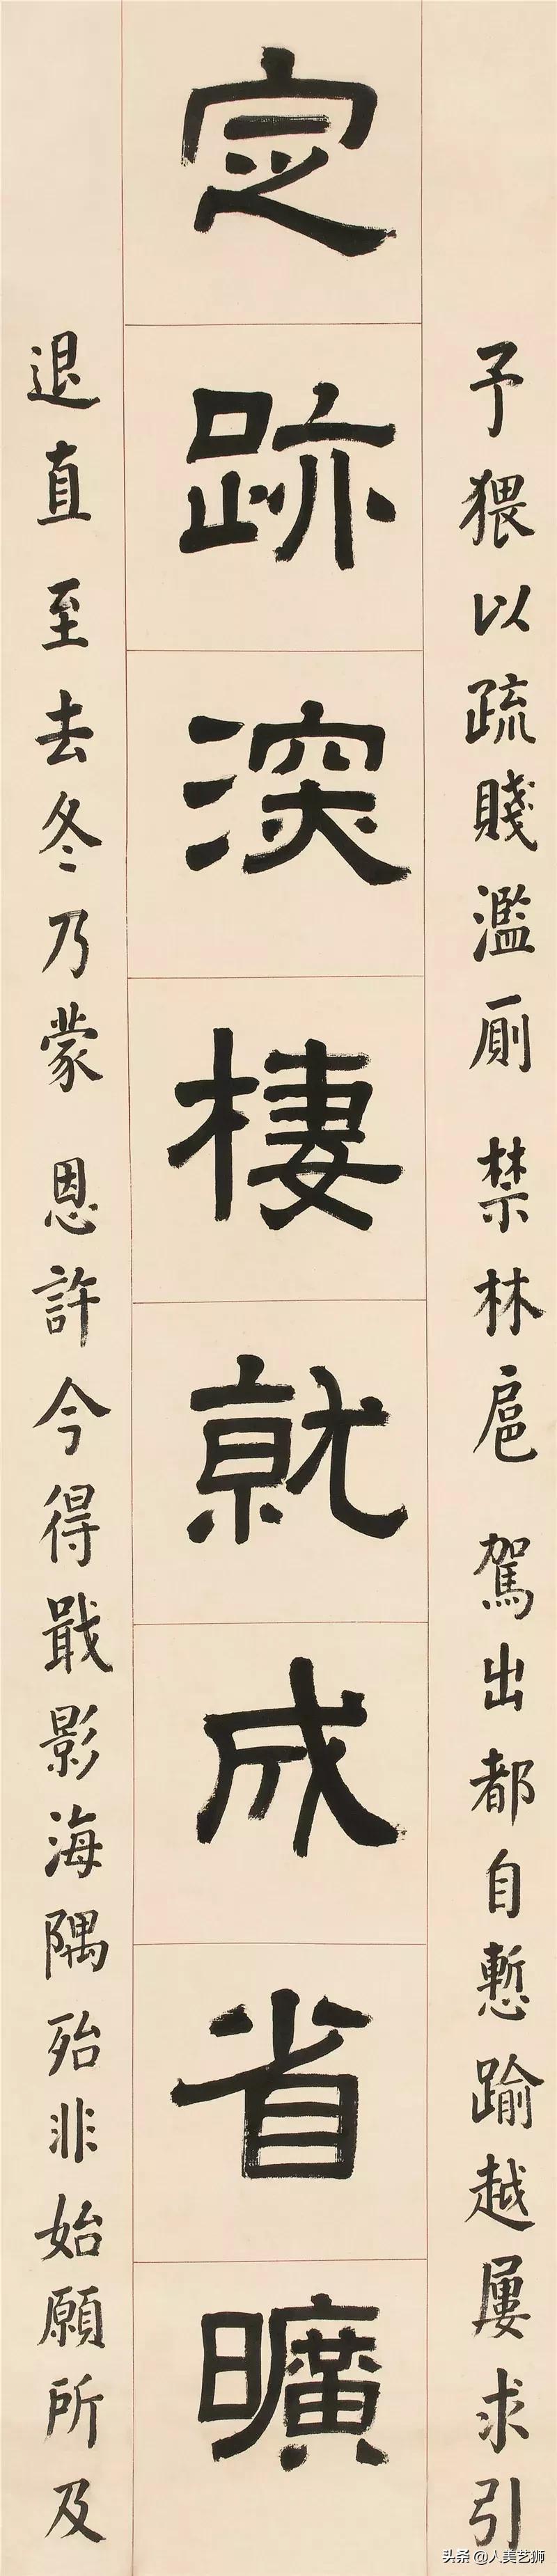 定跡深棲就成省曠
予猥以疏賤濫廁禁林扈駕出都自慙踰越屢求引
退直至去冬乃蒙恩許今得戢影海隅殆非始願所及
头条 @人美艺狮